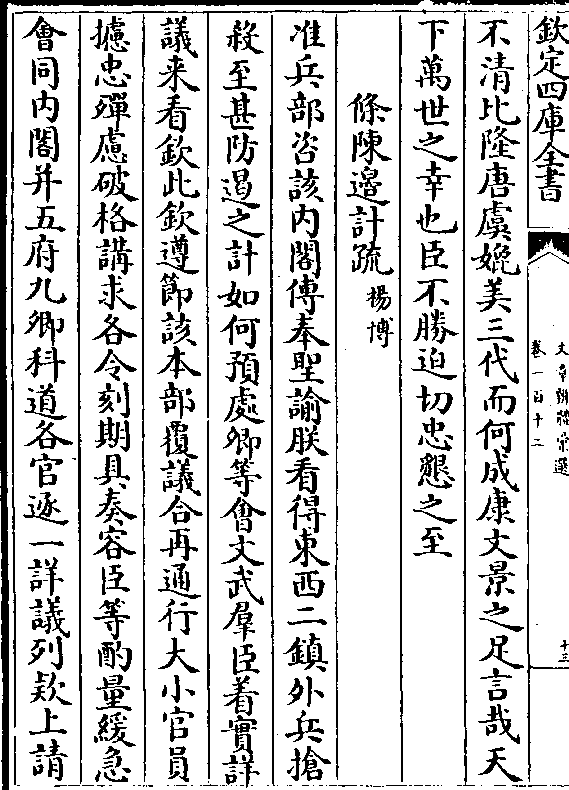 欽定四庫全書
文章辨體彙選
卷一百十二
十三
不清比隆唐虞媲美三代而何成康文景之足言哉天
下萬世之幸也臣不勝迫切忠懇之至
條陳邉計疏 楊博
准兵部咨該内閣傳奉聖諭朕看得東西二鎮外兵搶
殺至甚防遏之計如何預處卿等會文武羣臣着實詳
議来看欽此欽遵節該本部覆議合再通行大小官員
攄忠殫慮破格講求各令刻期具奏容臣等酌量緩急
會同内閣并五府九卿科道各官逐一詳議列欵上請